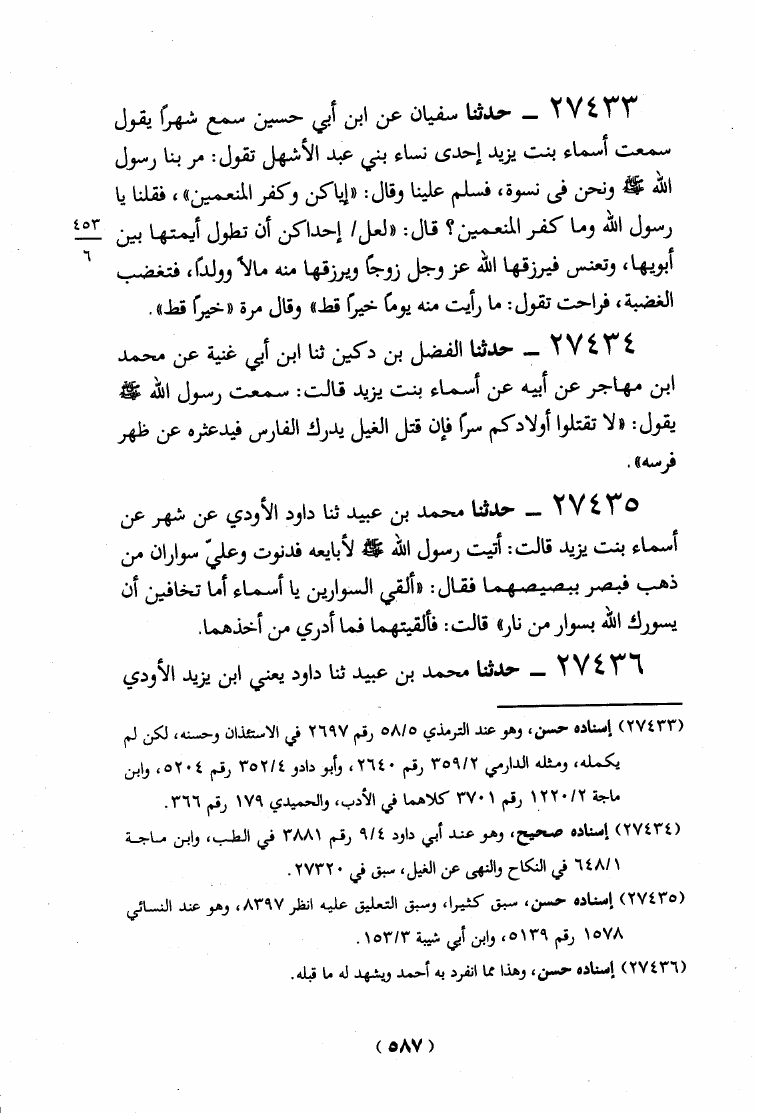 ٢٧٤٣٣ ـ حدثنا سفيان عن ابن أبي حسين سمع شهراً يقول
سمعت أسماء بنت يزيد إحدى نساء بني عبد الأشهل تقول: مر بنا رسول
الله ﷺ ونحن فى نسوة، فسلم علينا وقال: «إياكن وكفر المنعمين»، فقلنا يا
رسول الله وما كفر المنعمين؟ قال: «لعل/ إحداكن أن تطول أيمتها بين
٤٥٣
٦
أبويها، وتعنس فيرزقها الله عز وجل زوجاً ويرزقها منه مالاً وولداً، فتغضب
الغضبة، فراحت تقول: ما رأيت منه يوماً خيراً قط» وقال مرة «خيراً قط».
٢٧٤٣٤ ـ حدثنا الفضل بن دكين ثنا ابن أبي غنية عن محمد
ابن مهاجر عن أبيه عن أسماء بنت يزيد قالت: سمعت رسول الله ﷺ
يقول: «لا تقتلوا أولادكم سراً فإن قتل الغيل يدرك الفارس فيدعثره عن ظهر
فرسه».
٢٧٤٣٥ ـ حدثنا محمد بن عبيد ثنا داود الأودي عن شهر عن
أسماء بنت يزيد قالت: أتيت رسول الله ﷺ لأبايعه فدنوت وعليّ سواران من
ذهب فبصر ببصيصهما فقال: «ألقي السوارين يا أسماء أما تخافين أن
يسورك الله بسوار من نار» قالت: فألقيتهما فما أدري من أخذهما.
٢٧٤٣٦ ـ حدثنا محمد بن عبيد ثنا داود يعني ابن يزيد الأودي
(٢٧٤٣٣) إسناده حسن، وهو عند الترمذي ٥٨/٥ رقم ٢٦٩٧ في الاستئذان وحسنه، لكن لم
يكمله، ومثله الدارمي ٣٥٩/٢ رقم ٢٦٤٠، وأبو دادو ٣٥٢/٤ رقم ٥٢٠٤، وابن
ماجة ١٢٢٠/٢ رقم ٣٧٠١ كلاهما في الأدب، والحميدي ١٧٩ رقم ٣٦٦.
(٢٧٤٣٤) إسناده صحيح، وهو عند أبي داود ٩/٤ رقم ٣٨٨١ في الطب، وابن ماجة
٦٤٨/١ في النكاح والنهى عن الغيل، سبق في ٢٧٣٢٠.
(٢٧٤٣٥) إسناده حسن، سبق كثيرا، وسبق التعليق عليه انظر ٨٣٩٧، وهو عند النسائي
١٥٧٨ رقم ٥١٣٩، وابن أبي شيبة ١٥٣/٣.
(٢٧٤٣٦) إسناده حسن، وهذا مما انفرد به أحمد ويشهد له ما قبله.
(٥٨٧)